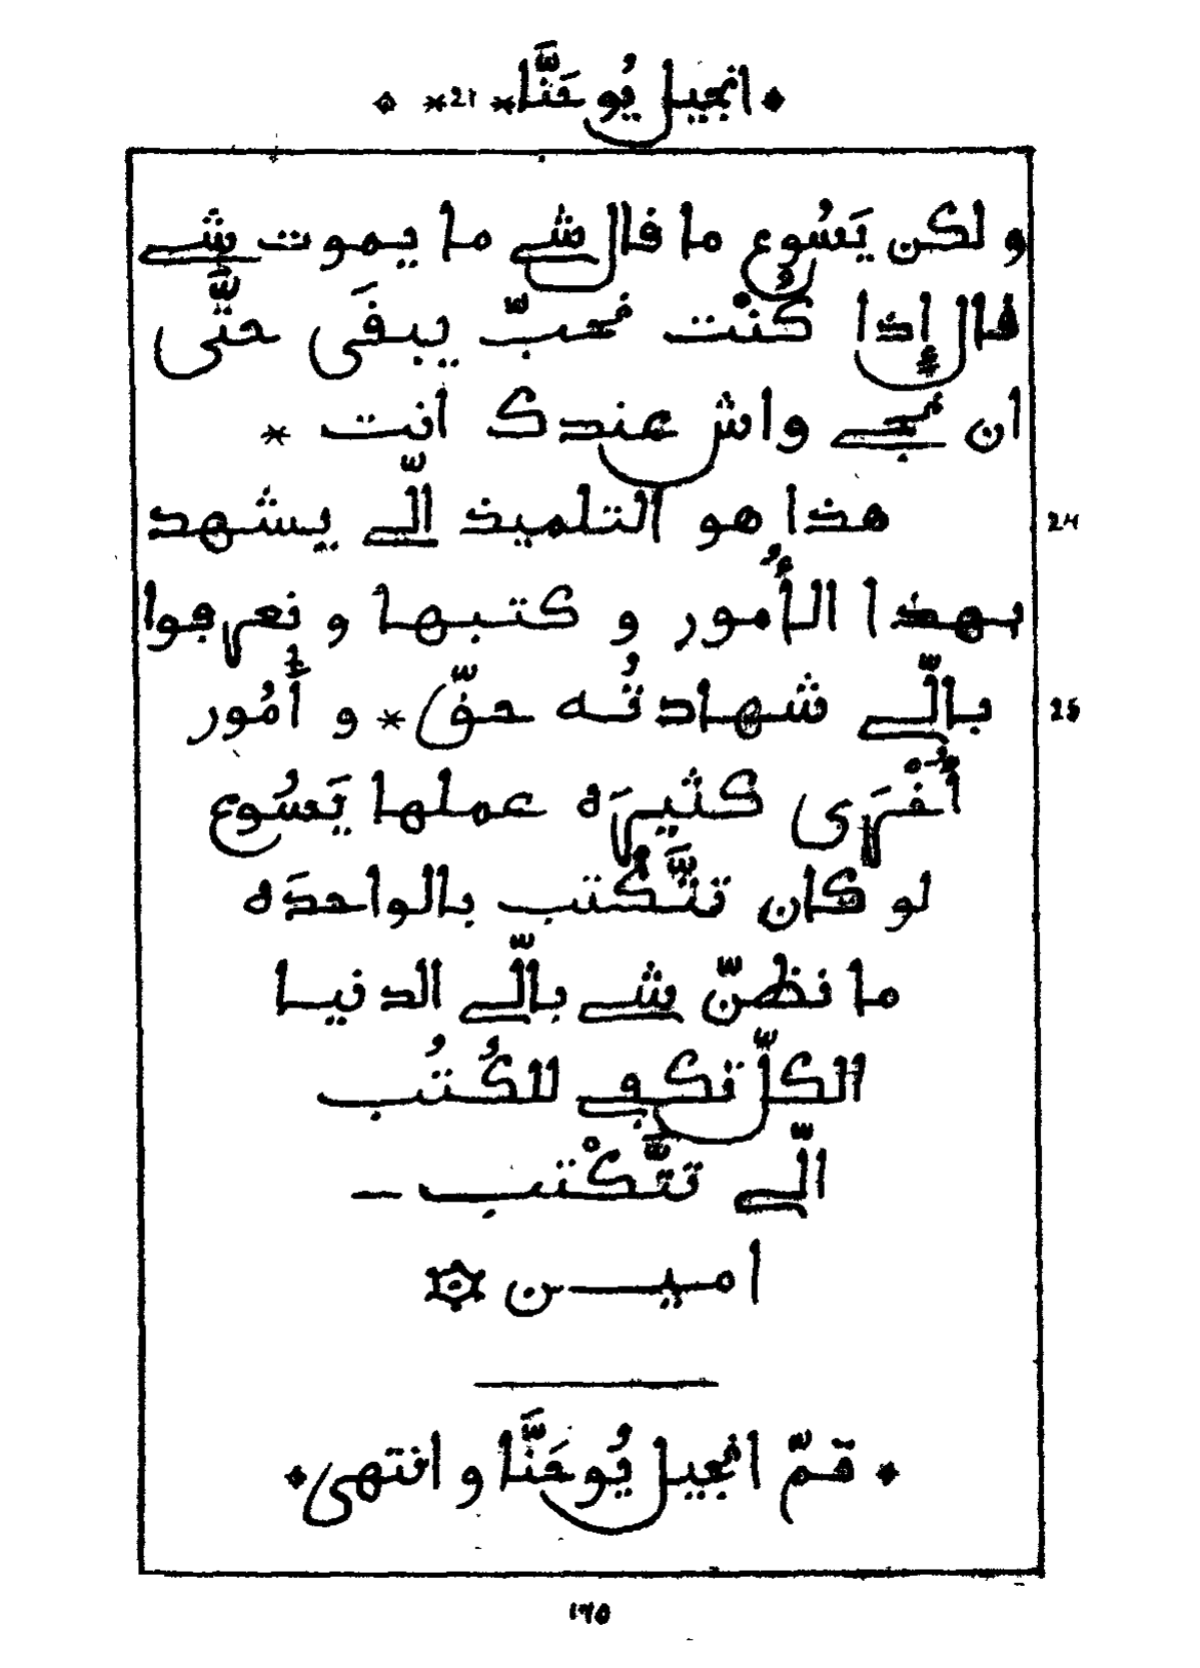 * انجيل يُوحَنَّا * 21 *
و لكن يَسُوع ما قال شي ما يموت شي
قال إذا كُنْت نحبّ يبقَى حتَّى
ان نجي واش عندك انت *
24 هذا هو التلميذ الّي يشهد
بهذا الأُمور و كتبها و نعرفوا
25 بالّي شهادتُه حقّ * و أُمُور
أُخْرَى كثيرَه عملها يَسُوع
لو كان تتَّكْتب بالواحدَه
ما نظنّ شي بالّي الدنيا
الكلّ تكفي للكُتُب
الّي تتَّكْتب –
امين ۞
* تمّ انجيل يُوحَنَّا و انتهى *
170